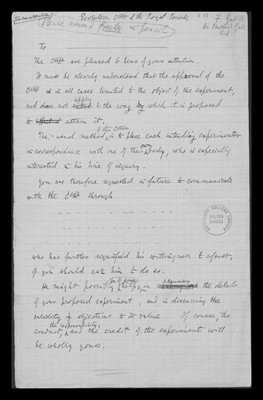 Evolution Com of the Royal Society
Please amend freely in pencil
To
The Com are pleased to hear of your intention.
It must be clearly understood that the approval of the
Com is in all cases limited to the object of the experiment,
and does not apply to the way by which it is proposed
to attain it.
The usual method of the Com is to place each intending experimenter
in correspondence with one of their body, who is especially
interested in his line of inquiry.
You are therefore requested in future to communicate
with the Com through
who has further signified his willingness to afford,
if you should ask him to do so.
He might possibly help you in the details
of your proposed experiment, and in discussing the
validity of objections to its value. Of course, the
conduct, the responsibility, and the credit of the experiment will
be wholly yours.